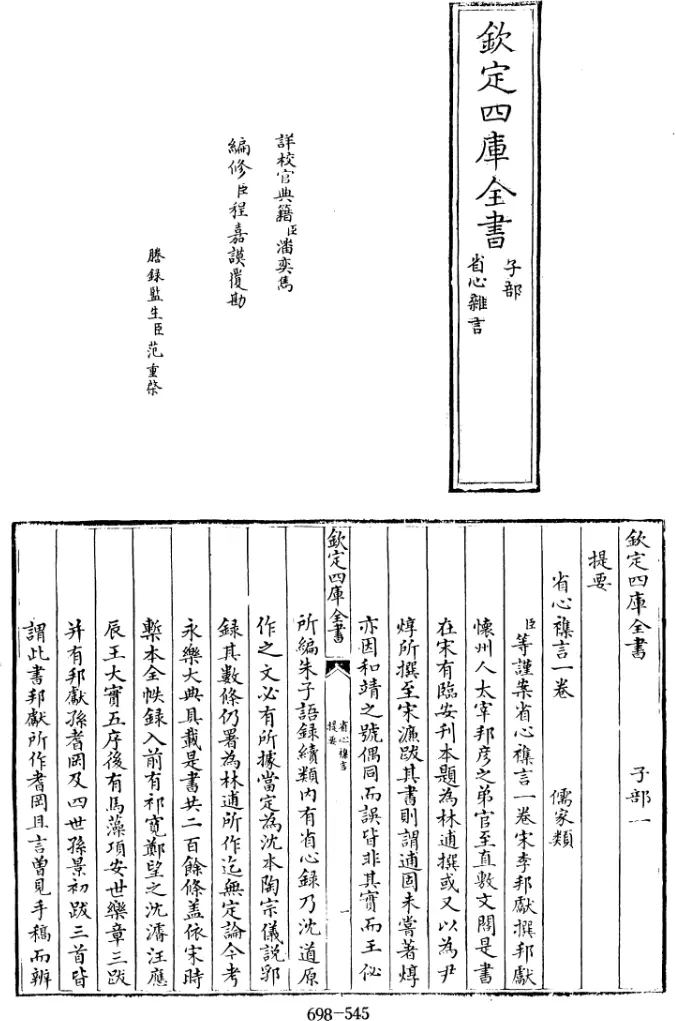 欽定四庫全書
子部
省心雜言
詳校官典籍臣潘奕雋
編修臣程嘉謨覆勘
謄錄監生臣范重棨
欽定四庫全書
子部一
提要
省心襍言一卷
儒家類
臣等謹案省心襍言一卷宋李邦獻撰邦獻
懷州人太宰邦彦之弟官至直敷文閣是書
在宋有臨安刋本題為林逋撰或又以為尹
焞所撰至宋濂跋其書則謂逋固未嘗著焞
亦因和靖之號偶同而誤皆非其實而王佖
欽定四庫全書
省心襍言
提要
一
所編朱子語録續類内有省心録乃沈道原
作之文必有所據當定為沈本陶宗儀説郛
録其數條仍署為林逋所作迄無定論今考
永樂大典具載是書共二百餘條盖依宋時
槧本全帙録入前有祁寛鄭望之沈濬汪應
辰王大實五序後有馬藻項安世樂章三跋
并有邦獻孫耆岡及四世孫景初跋三首皆
謂此書邦獻所作耆岡且言曽見手稿而辨
698-545